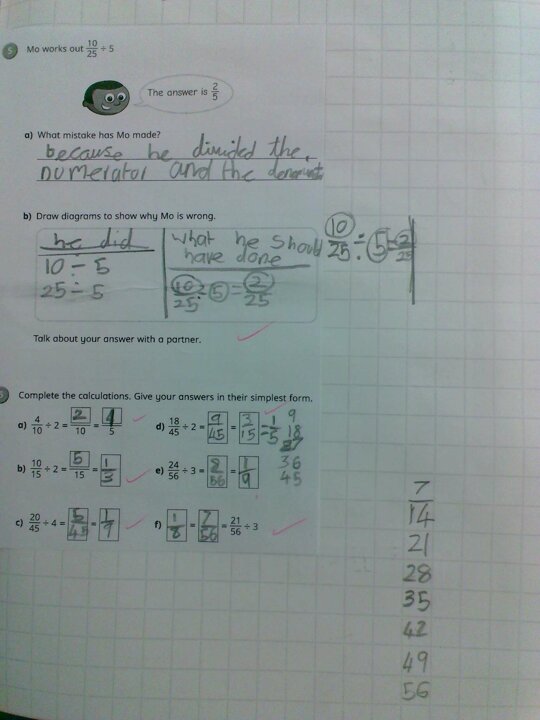 5 Mo works out 10/25 ÷ 5
The answer is 2/5
a) What mistake has Mo made?
because he divided the
numerator and the
b) Draw diagrams to show why Mo is wrong.
he did
10 ÷ 5
25 ÷ 5
what he should
have done
10/25 ÷ 5 = 2/25
10/25 ÷ 5 = 2/25
Talk about your answer with a partner.
Complete the calculations. Give your answers in their simplest form.
a) 4/10 ÷ 2 = 2/10 = 1/5
d) 18/45 ÷ 2 = 9/45 = 3/15 = 1/5
b) 10/15 ÷ 2 = 5/15 = 1/3
e) 24/56 ÷ 3 = 8/56 = 1/9
c) 20/45 ÷ 4 = 5/45 = 1/9
f) 1/8 = 7/56 = 21/56 ÷ 3
9
18
27
36
45
7
14
21
28
35
42
49
56